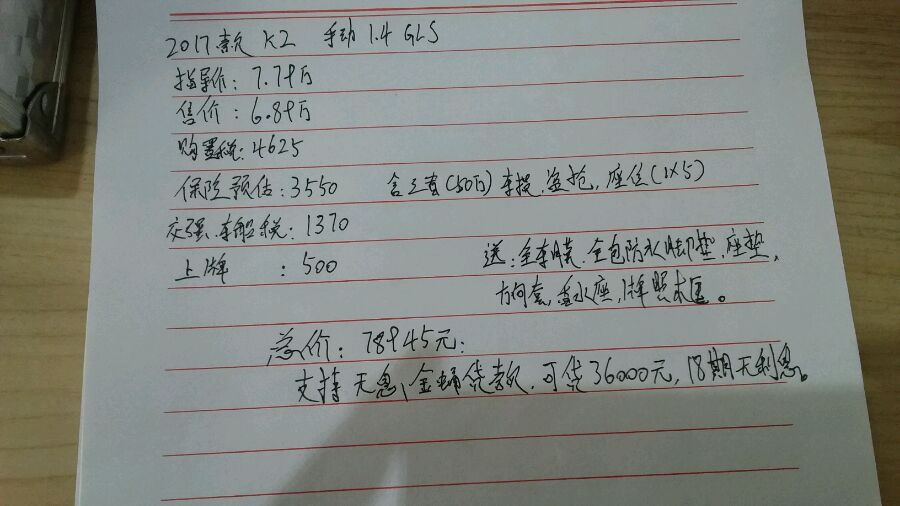 2017款 K2 手动 1.4 GLS
指导价：7.79万
售价：6.89万
购置税：4625
保险预估：3550 含三责(50万)车损.盗抢，座位(1X5)
交强.车船税：1370
上牌：500 送：全车膜.全包防水脚垫.座垫，
方向套，香水座，牌照框。
总价：78945元：
支持无息、金融贷款，可贷36000元，18期无利息。